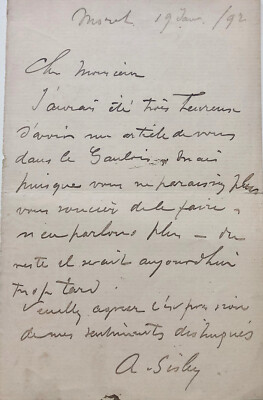 Moret 19 /92
Cher Monsieur
J'aurais été très heureux
d'avoir un article de vous
dans le Gaulois. Mais
puisque vous ne paraissez plus
vous soucier de le faire,
n'en parlons plus — du
reste il serait aujourd'hui
trop tard.
Veuillez agréer l'expression
de mes sentiments distingués
A. Sisley